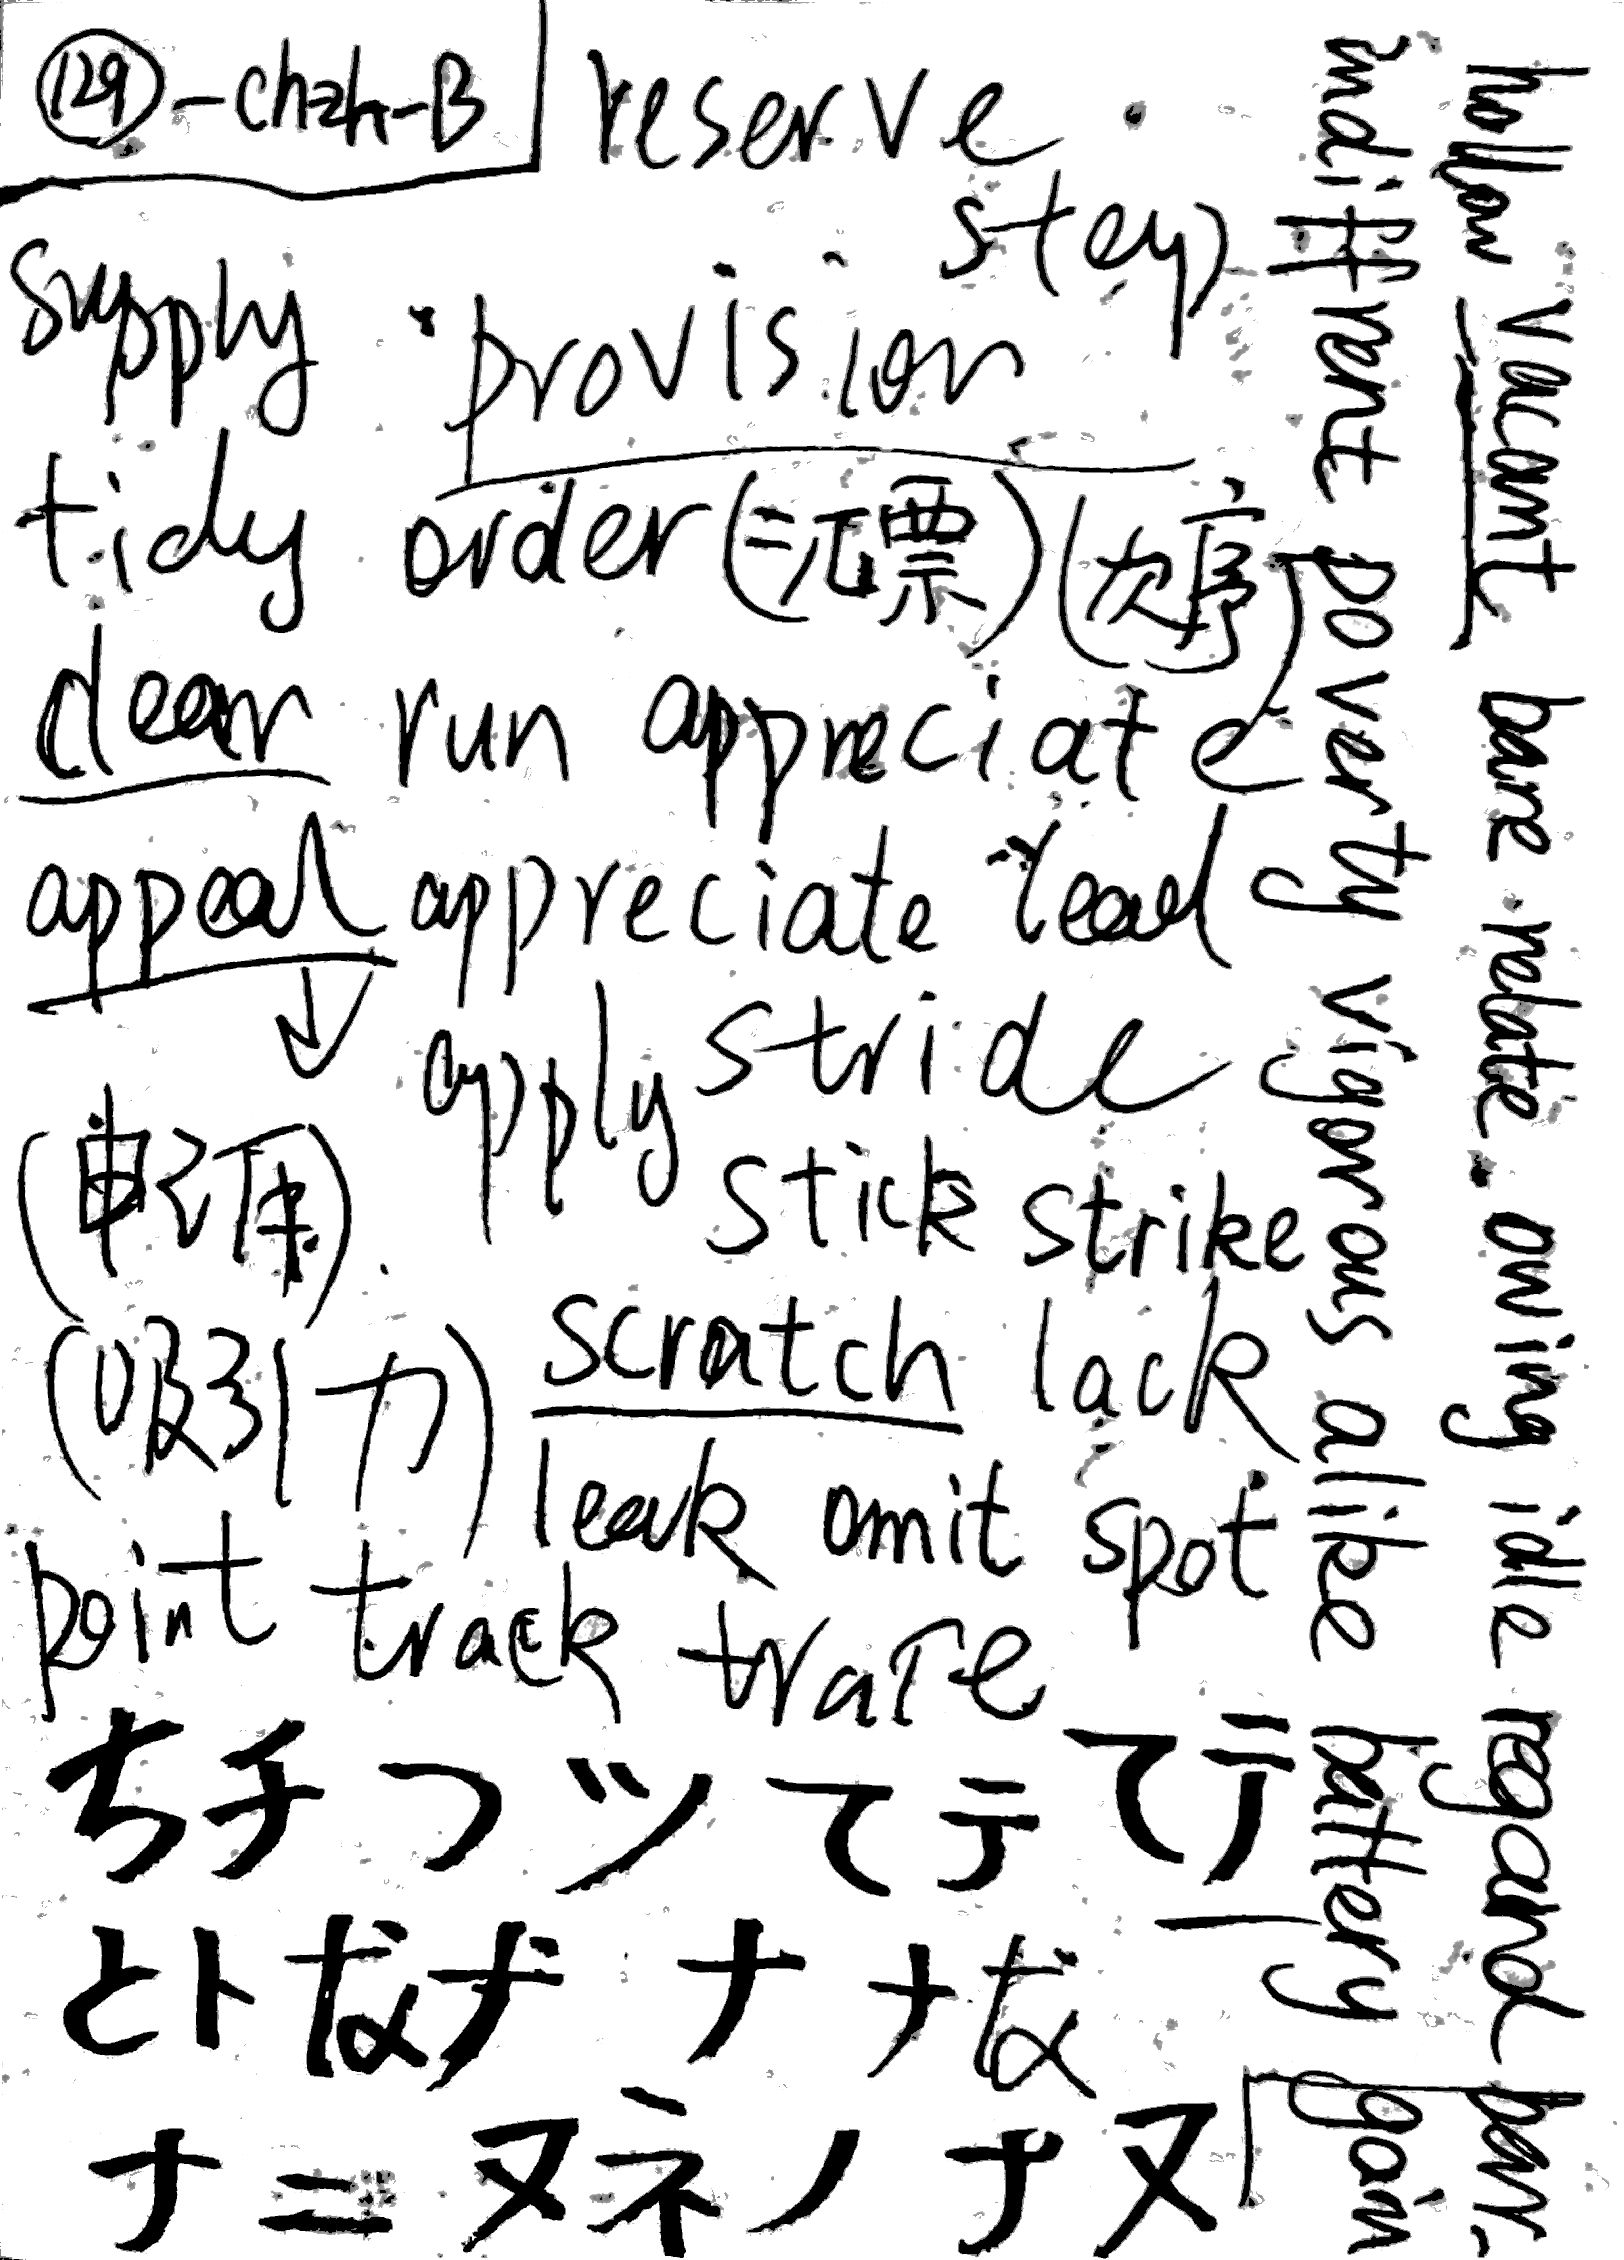 129-chzh-B
reserve
step
supply provision
tidy order (汇票) (次序)
clear run appreciate
appeal appreciate lead
apply stride
stick strike
(吸引力) scratch lack
leak omit spot
point track trace
ちチつツてテてテ
とトなナ ナ ナな
ナニヌネノ ナヌ
hollow vacant bare relate owing idle regard bar.
indifferent poverty vigorous alike battery gain